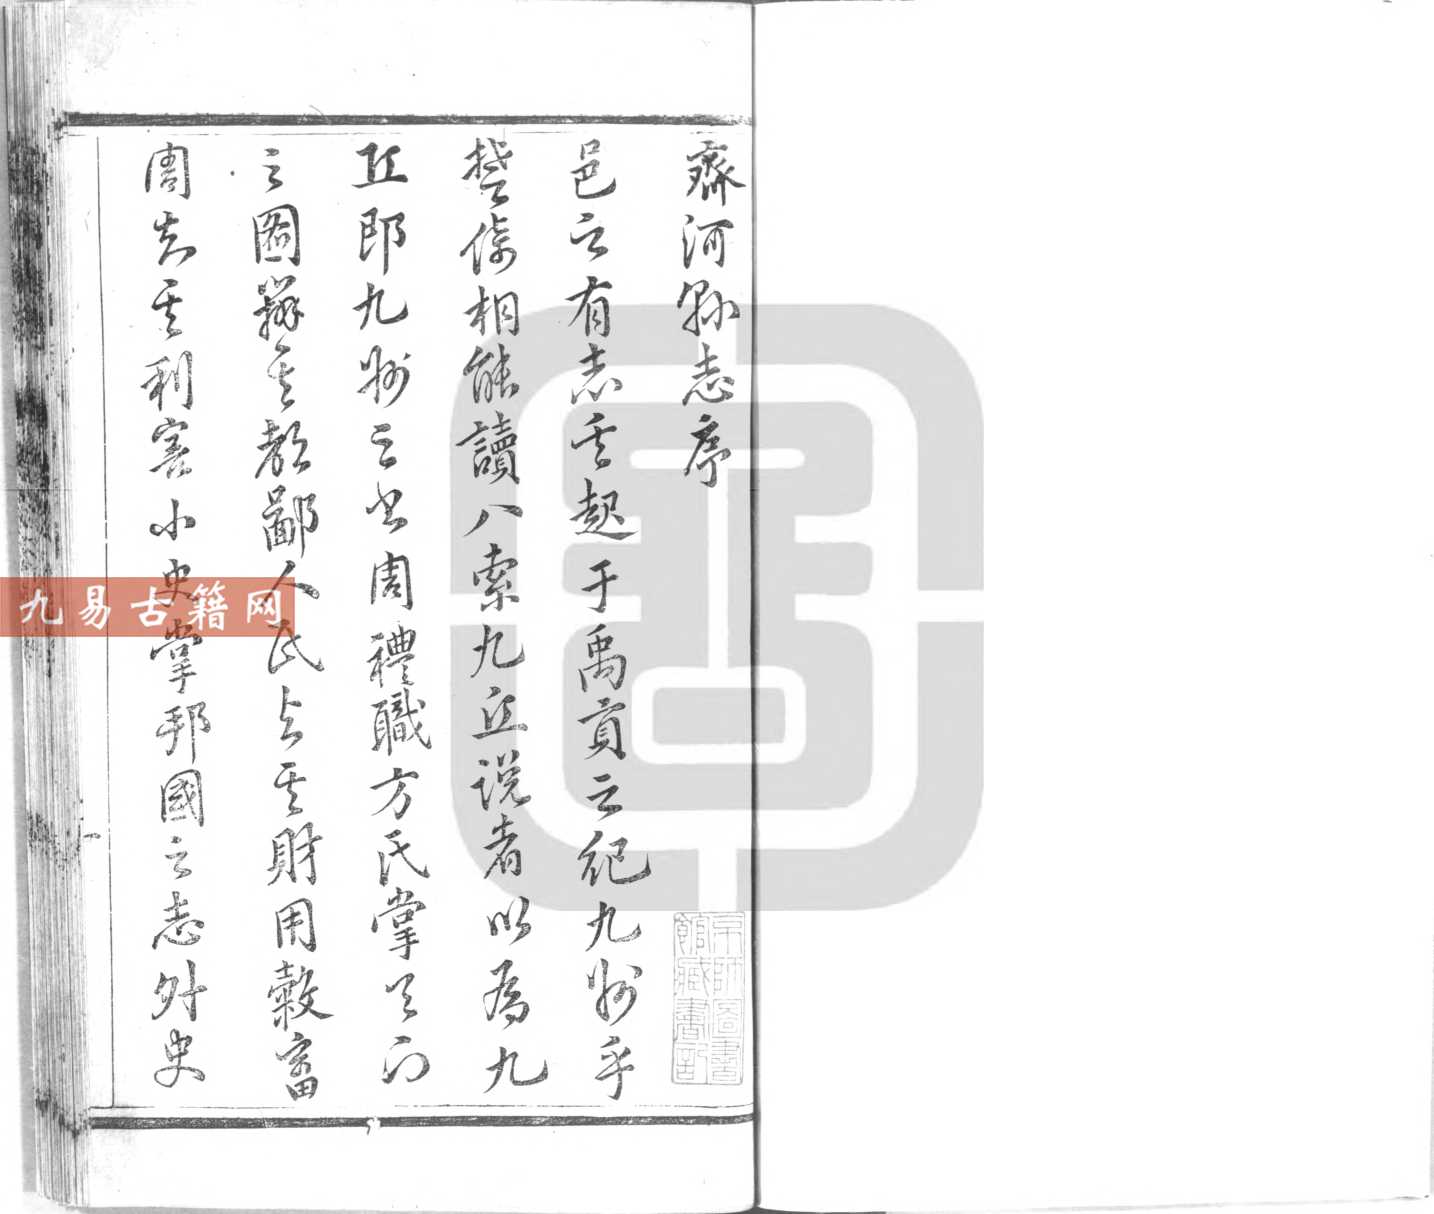 齊河縣志序
邑之有志其起于禹貢之紀九州乎
楚倚相能讀八索九丘說者以為九
丘即九州之書周禮職方氏掌天下
之圖辨其都鄙人民與其財用穀畜
周知其利害小史掌邦國之志外史
京師圖書
館藏書記
九易古籍网